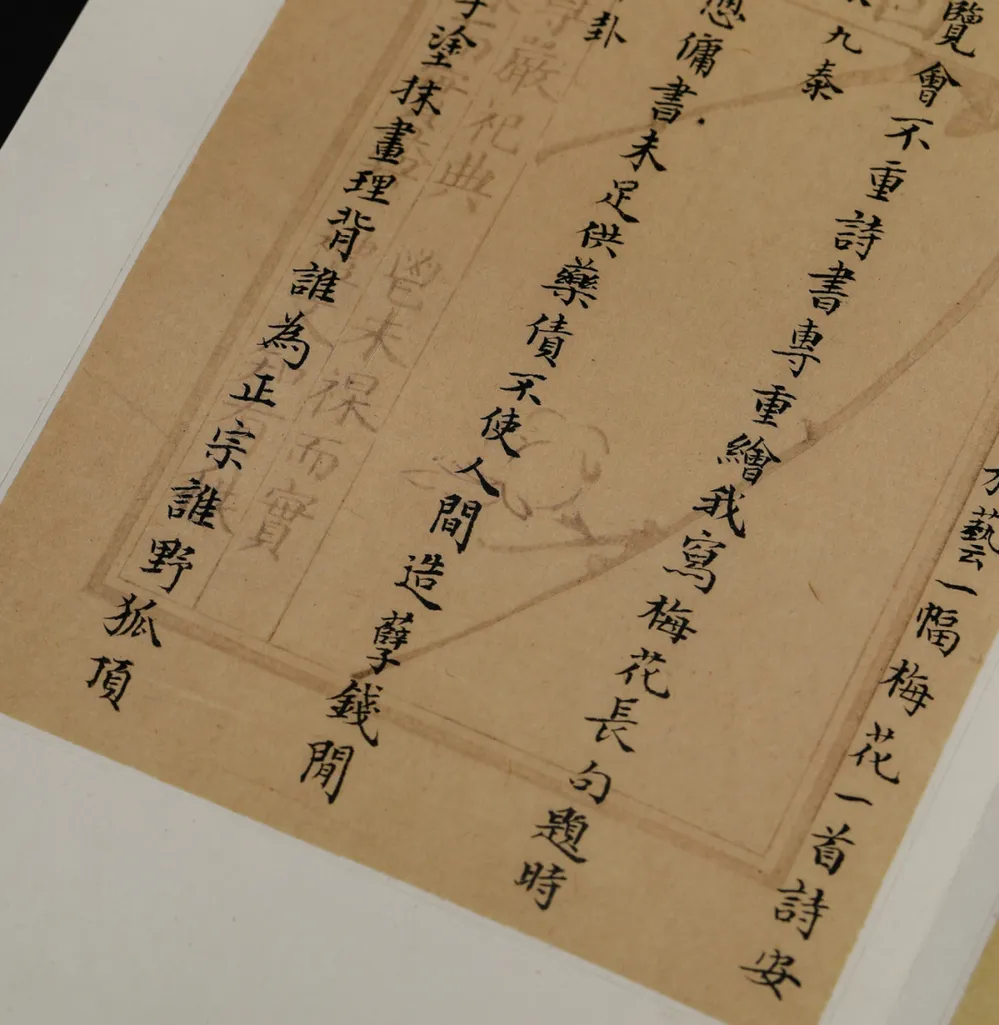 藝一幅梅花一首詩安
覽會不重詩書專重繪我寫梅花長句題時
九泰
傭書未足供藥債不使人間造孽錢閒
卦
塗抹畫理背誰為正宗誰野狐頂
嚴祀典 鬯未祼而實